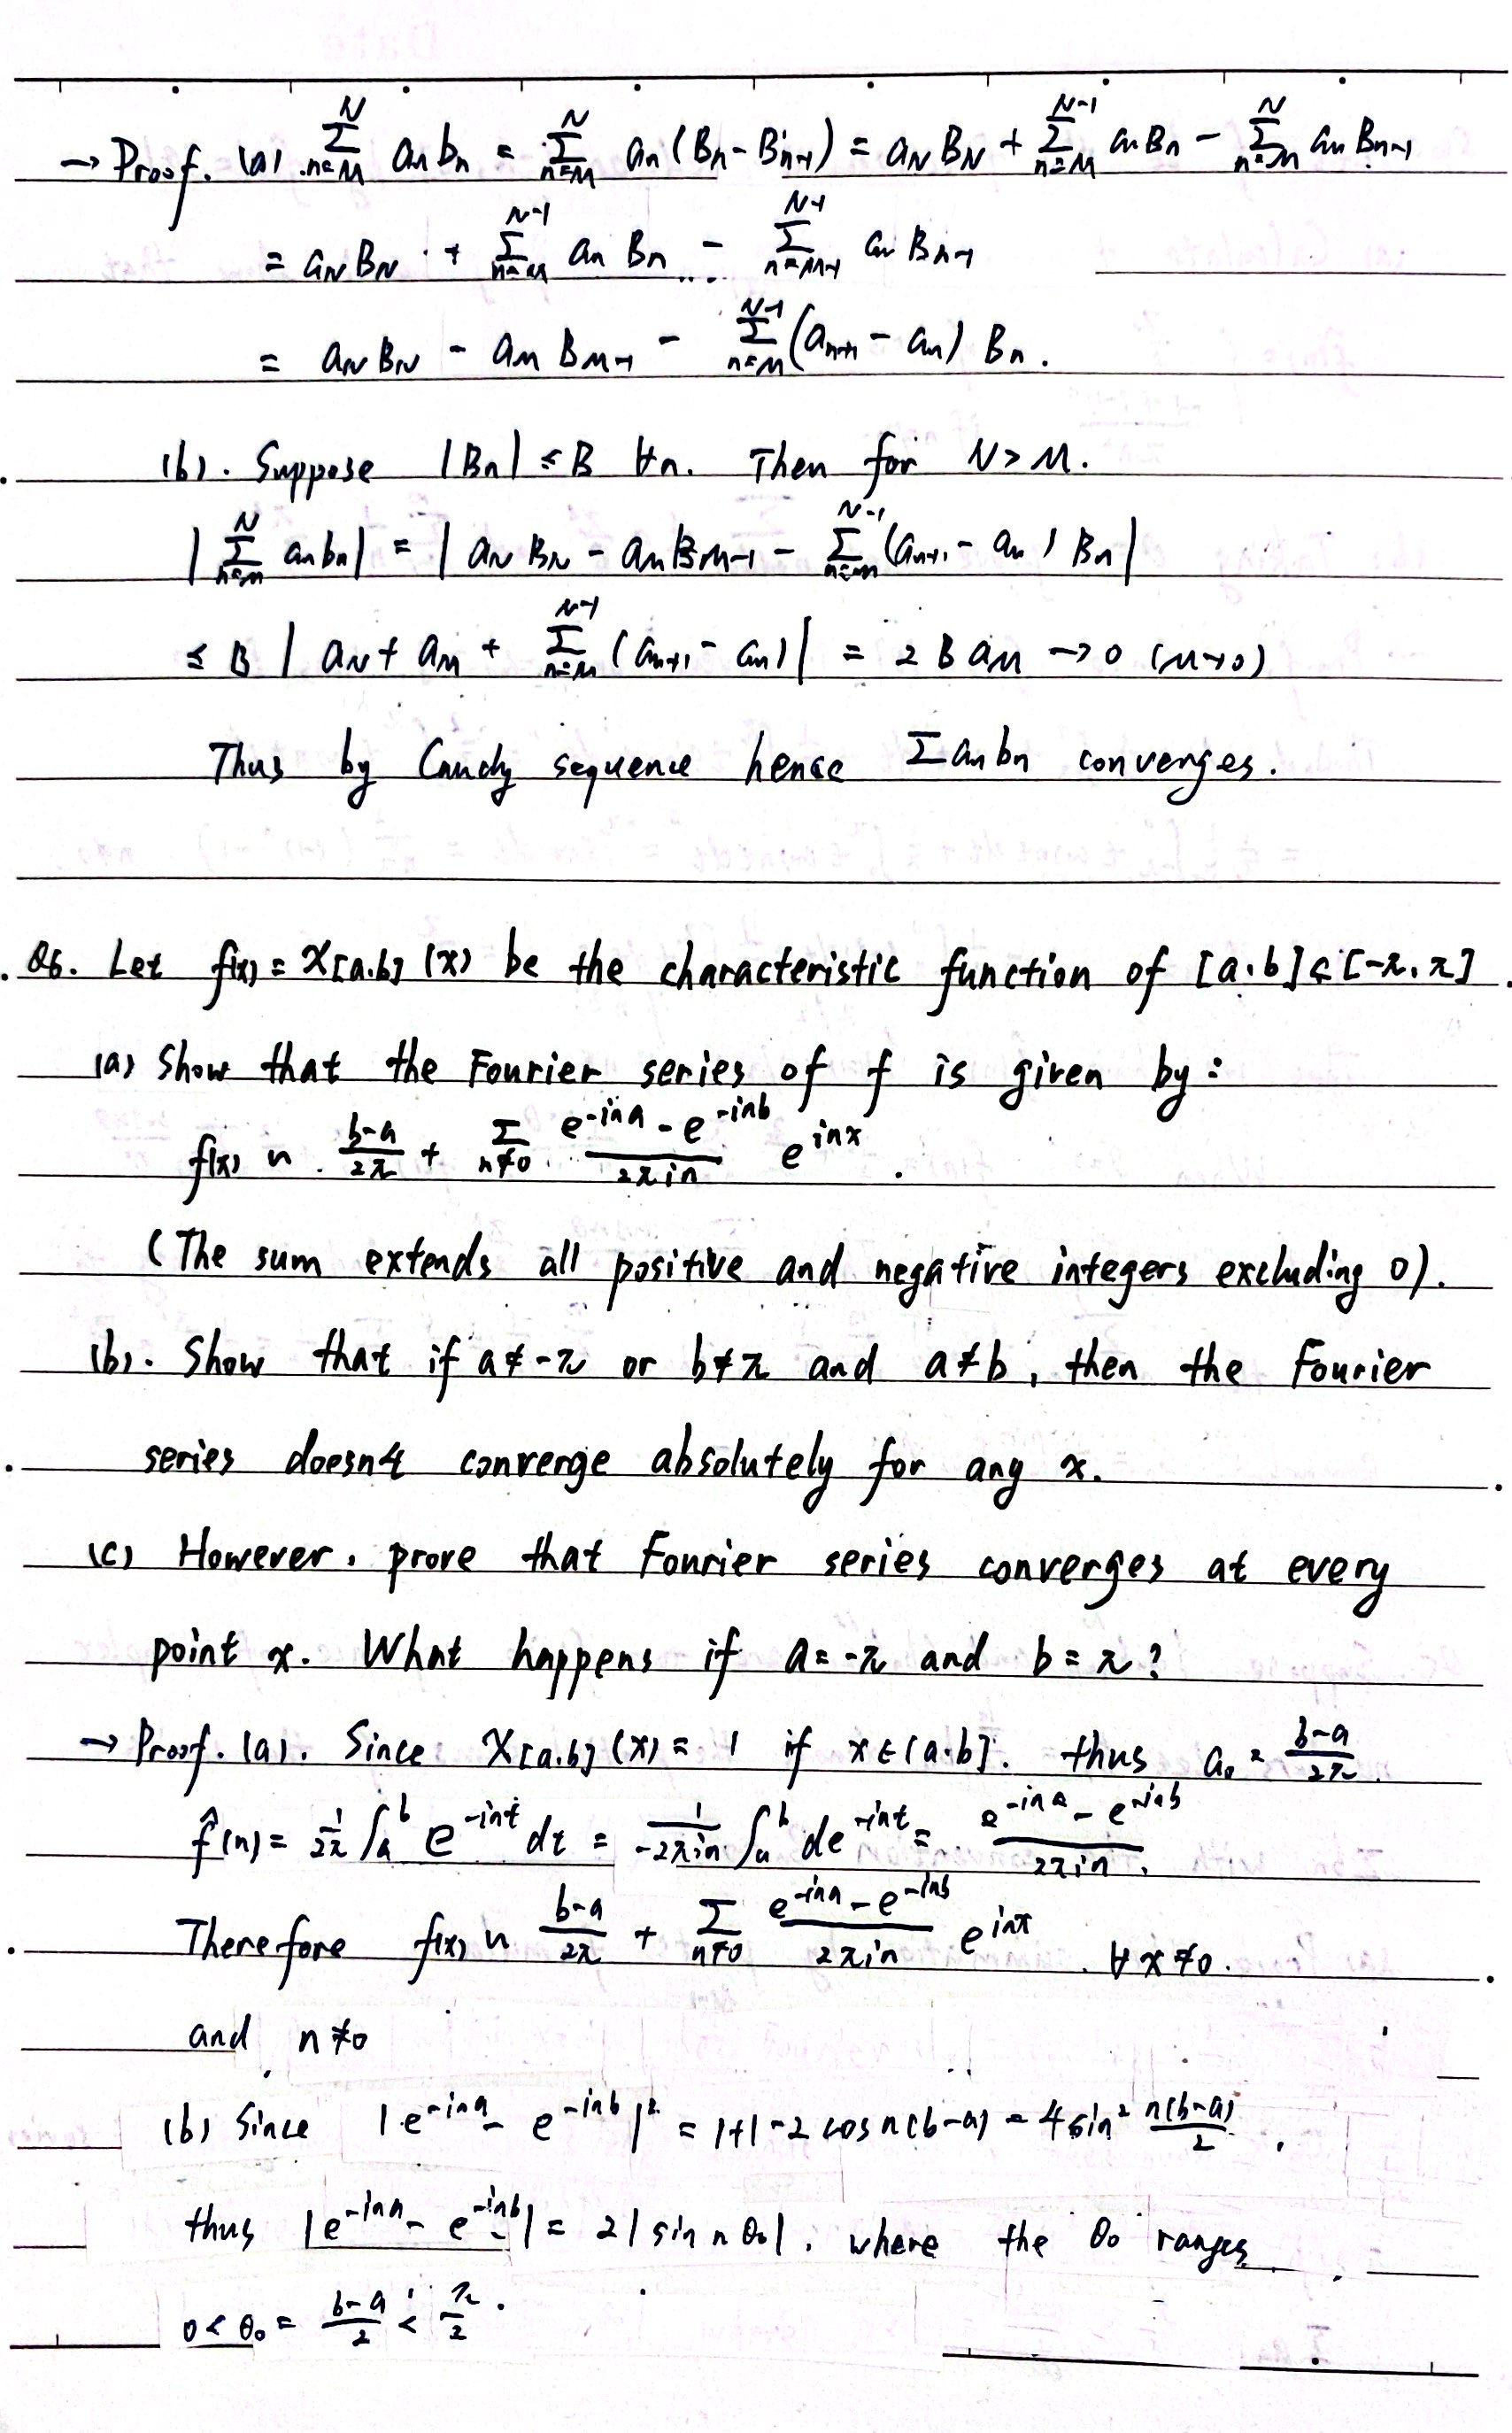 → Proof. (a). $\sum_{n=M}^{N} a_n b_n = \sum_{n=M}^{N} a_n (B_n - B_{n-1}) = a_N B_N + \sum_{n=M}^{N-1} a_n B_n - \sum_{n=M}^{N} a_n B_{n-1}$
$= a_N B_N + \sum_{n=M}^{N-1} a_n B_n - \sum_{n=M-1}^{N-1} a_n B_{n-1}$
$= a_N B_N - a_M B_{M-1} - \sum_{n=M}^{N-1} (a_{n+1} - a_n) B_n.$
(b). Suppose $|B_n| \le B$ ∀n. Then for N > M.
$|\sum_{n=M}^{N} a_n b_n| = |a_N B_N - a_M B_{M-1} - \sum_{n=M}^{N-1} (a_{n+1} - a_n) B_n|$
$\le B |a_N + a_M + \sum_{n=M}^{N-1} (a_{n+1} - a_n)| = 2 B a_M \to 0 (M \to 0)$
Thus by Cauchy sequence hence $\sum a_n b_n$ converges.
Q6. Let $f(x) = \chi_{[a,b]}(x)$ be the characteristic function of $[a,b] \subset [-\pi, \pi]$.
(a) Show that the Fourier series of f is given by:
$f(x) \sim \frac{b-a}{2\pi} + \sum_{n \ne 0} \frac{e^{-ina} - e^{-inb}}{2\pi i n} e^{inx}.$
(The sum extends all positive and negative integers excluding 0).
(b). Show that if $a \ne -\pi$ or $b \ne \pi$ and $a \ne b$, then the Fourier
series doesn't converge absolutely for any x.
(c) However, prove that Fourier series converges at every
point x. What happens if $a = -\pi$ and $b = \pi$?
→ Proof. (a). Since $\chi_{[a,b]}(x) = 1$ if $x \in [a,b]$. thus $a_0 = \frac{b-a}{2\pi}$.
$\hat{f}(n) = \frac{1}{2\pi} \int_a^b e^{-int} dt = \frac{1}{-2\pi i n} \int_a^b d e^{-int} = \frac{e^{-ina} - e^{-inb}}{2\pi i n}.$
Therefore $f(x) \sim \frac{b-a}{2\pi} + \sum_{n \ne 0} \frac{e^{-ina} - e^{-inb}}{2\pi i n} e^{inx}$. ∀ x ≠ 0.
and n ≠ 0
(b) Since $|e^{-ina} - e^{-inb}|^2 = 1+1-2 \cos n(b-a) = 4 \sin^2 \frac{n(b-a)}{2}$,
thus $|e^{-ina} - e^{-inb}| = 2 |\sin n \theta_0|$. where the $\theta_0$ ranges
$0 < \theta_0 = \frac{b-a}{2} < \frac{\pi}{2}.$